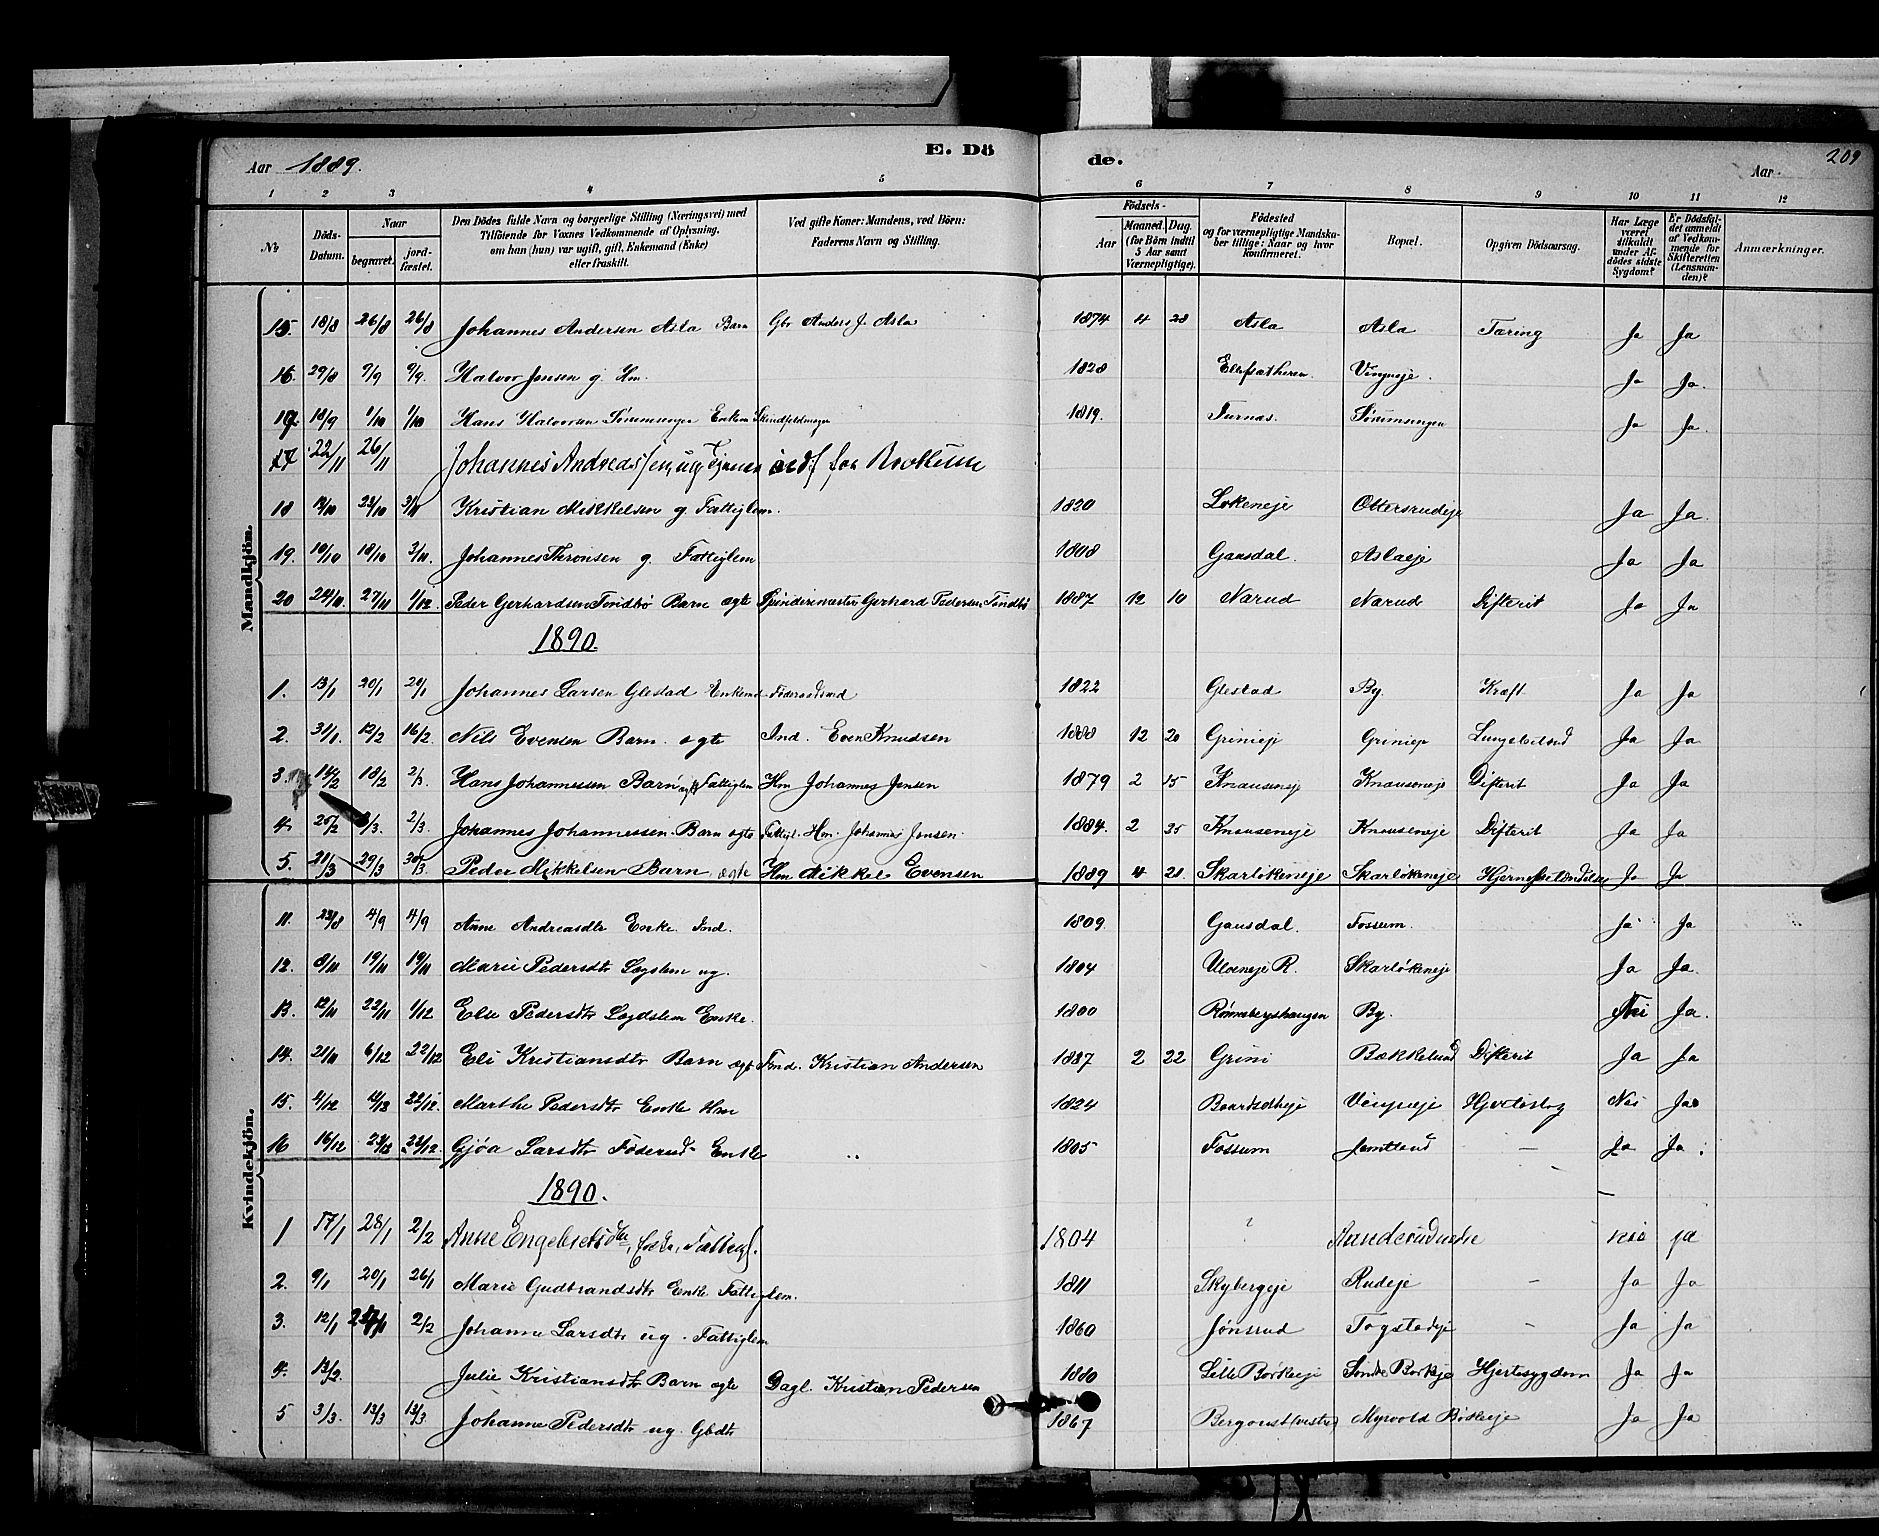 Aar 1889. E. Dö de. Aar 209
1 2 3 4 5 6 7 8 9 10 11 12
No Döds-Datum. Naar begravet. jordfæstet. Den Dödes fulde Navn og borgerlige Stilling (Næringsvei) med Tilföiende for Voxnes Vedkommende af Oplysning, om han (hun) var ugift, gift, Enkemand (Enke) eller fraskilt. Ved gifte Koner: Mandens, ved Börn: Faderens Navn og Stilling. Födsels- Aar Maaned. Dag. (for Börn indtil 5 Aar samt Værnepligtige). Födested og for værnepligtige Mandskaber tillige: Naar og hvor konfirmeret. Bopæl. Opgiven Dödsaarsag. Har Læge været tilkaldt under Afdödes sidste Sygdom? Er Dödsfaldet anmeldt af Vedkommende for Skifteretten (Lensmanden)? Anmærkninger.
Mandkjön.
15. 18/8 26/8 26/8 Johannes Andersen Asla Barn Gbr Anders J. Asla 1874 4 28 Asla Asla Tæring Ja Ja
16. 29/8 9/9 9/9. Halvor Jensen g. Hm. 1828 Vingneje. Ja Ja.
17 18/9 1/10 1/10 Hans Halvorsen Enkem 1819. Furnæs. Ja Ja.
22/11 26/11 Johannes Andreas
18 23/10 3/11 Kristian Mikkelsen g Fattiglem. 1820 Løkeneje Ottersrudeje Ja Ja.
19. 10/10 18/10 3/11. Johannes Thronsen g. Fattiglem 1808 Gausdal. Aslaeje Ja Ja
20 24/11. 27/11 1/12. Peder Gerhardsen Tondbø Barn ægte Spinderimester Gerhard Pedersen Tondbø 1887 12 10 Narud Narud Difterit Ja Ja
1890.
1. 13/1 20/1 20/1 Johannes Larsen Glestad Enkemd Føderaadsmd 1822 Glestad By. Kræft Ja Ja
2. 31/1. 12/2 16/2. Nils Evensen Barn. ægte Ind. Even Knudsen 1888 12 20 Grinieje Grinieje Ja Ja
3. 14/2 18/2 2/3. Hans Johannessen Barn ægte Fattiglem Hm Johannes Jensen 1879 2 15 Knauseneje Knauseneje Difterit Ja Ja
4. 25/2 2/3. Johannes Johannessen Barn ægte Fattigl. Hm. Johannes Jensen. 1884. 2 25 Knauseneje Knauseneje Difterit Ja Ja
5. 21/3 29/3 30/3. Peder Mikkelsen Barn ægte Hm Mikkel Evensen 1889 4 21 Skarløkeneje Skarløkeneje Ja Ja
Kvindekjön.
11. 23/8 4/9 4/9 Anne Andreasdtr Enke. Ind. 1809. Gausdal. Fossum. Ja Ja
12. 8/11 19/11 19/11 Marie Pedersdtr Lægdslem ug. 1804 Ulveneje R. Skarløkeneje Ja Ja.
13. 12/11 22/11 1/12 Else Pedersdtr Lægdslem Enke. 1800 Rønnebergshaugen By. Nei Ja.
14. 21/11 6/12 22/12 Eli Kristiansdtr Barn ægte Ind. Kristian Andersen 1887 2 22 Grini Bækkelund Difterit Ja Ja
15. 4/12 22/12. Marthe Pedersdtr Enke Hm 1824 Vingneje Hjerteslag Nei Ja
16 16/12 22/12. Gjøa Larsdtr Føderaad Enke 1805 Fossum Jemtland - Ja Ja
1890.
1 17/1 28/1 2/2 Anne Engebretsdtr, 1804 ? nei ja
2. 9/1 20/1 26/1 Marie Gudbrandsdtr Enke Fattiglem. 1811 Skybergeje Rudeje - Ja Ja
3. 12/1 2/2 Johanne Larsdtr ug. Fattiglem 1860 Jønsrud Togstadeje - Ja Ja
4. 13/2. Julie Kristiansdtr Barn ægte Dagl. Kristian Pedersen 1880 Lille Børkeeje Hjertesygdom Ja Ja
5 3/3. 13/3 13/3 Johanne Pedersdtr ug. Gbdtr 1867 Bergoust (vestre) Myrvold Ja Ja